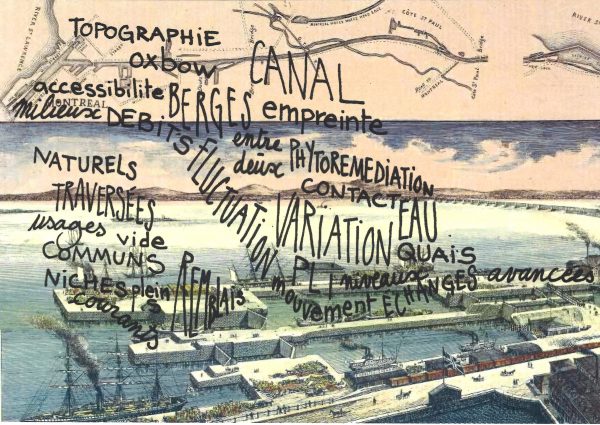 TOPOGRAPHIE
oxbow
CANAL
CÔTE ST PAUL
RIVER ST LAWRENCE
MONTREAL
accessibilite
BERGES
empreinte
milieux
DEBITS
entre
deux
PHYTOREMEDIATION
FLUCTUATION
CONTACT
NATURELS
TRAVERSÉES
VARIATION
EAU
usages vide
COMMUNS
QUAIS
PLI
niveaux
NICHES
plein
s
REMBLAIS
mouvement
ECHANGES
avancées
courants